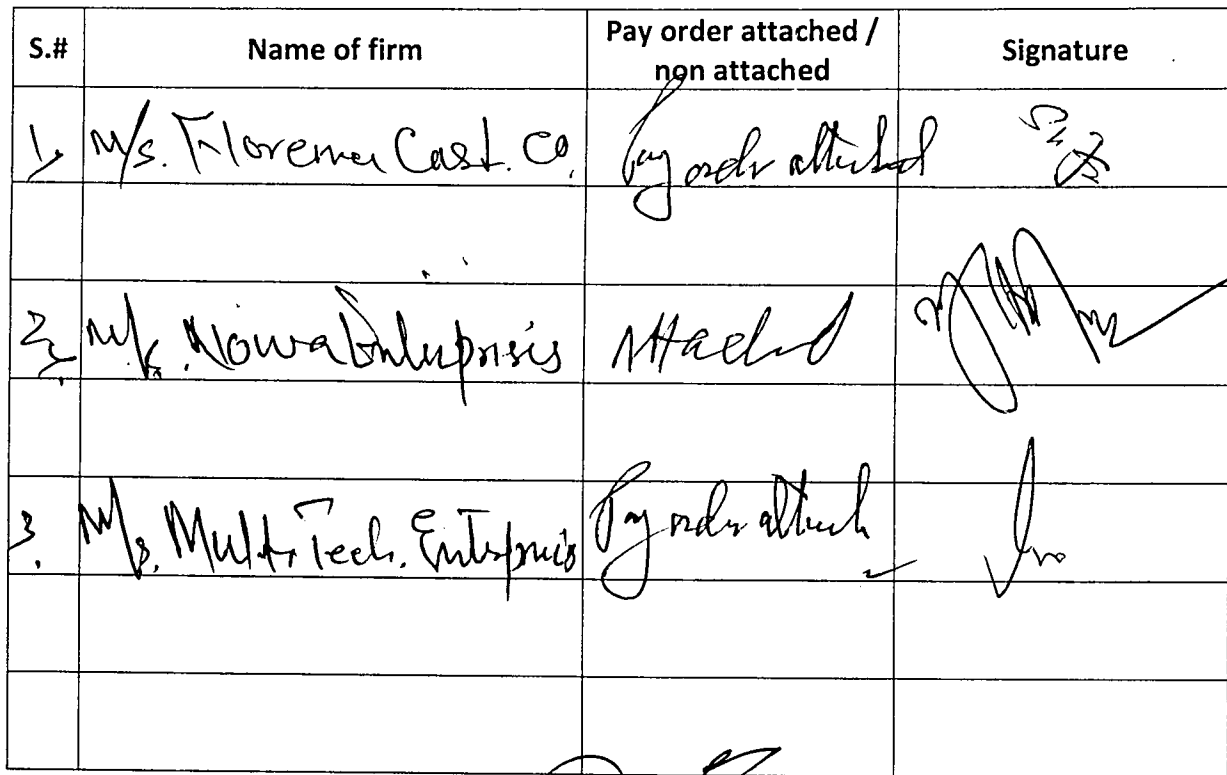 S.# Name of firm Pay order attached / non attached Signature
1, M/s. Florema Cast. Co. Pay order attached
2, M/s. Enterprisis Attached
3. M/s. Multi Tech. Enterpris Pay order attach